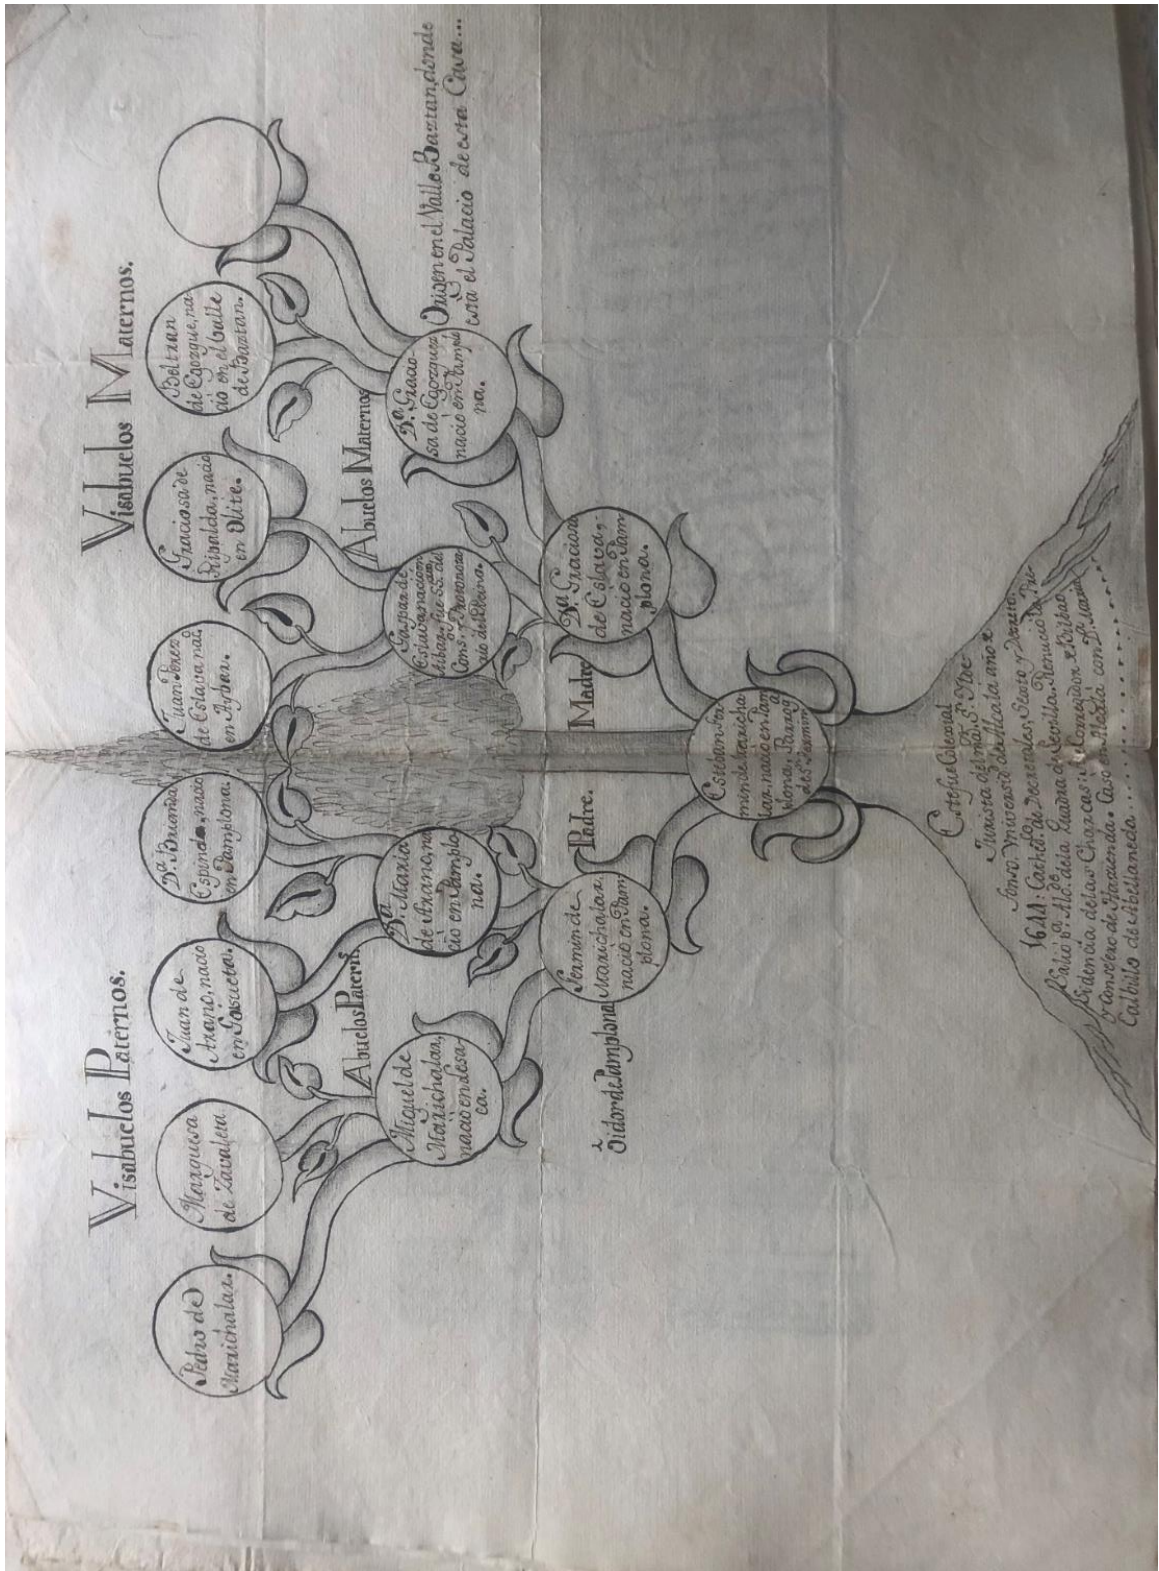 Visabuelos Paternos.
Visabuelos Maternos.
Pedro de
Marichalar.
Marquesa
de Zavaleta
Juan de
Arano, nacio
en Goisueta.
Dª. Brianda
Espinda, nacio
en Pamplona.
Juan Perez
de Eslava nacº.
en Aybar.
Graciosa de
Risalda, nacio
en Olite.
Beltran
de Egozque, na-
ció en el balle
de Baztan.
Abuelos Paterns.
Abuelos Maternos
Miguel de
Marichalar,
nacio en Lesa-
ca.
Dª. Maria
de Arano, na
cio en Pamplo
na.
Gaspar de
Eslava nacio en
Aibar, fue SSº. del
Consº. y
Dª. Gracio-
sa de Egozque
nacio en Pamplo
na.
Origen en el Valle Baztan, donde
está el Palacio de esta Casa...
Padre.
Madre
Oidor de Pamplona
Fermin de
Marichalar,
nació en Pam
plona.
Dª. Graciosa
de Eslava,
nació en Pam-
plona.
Esteban Fer
min de Maricha
lar, nació en Pam
plona, Parroqª
de Sn. Fermin
Este fue Colegial
Jurista del maor. de Sn.
Insº. Universid. de Alcalá año de
1644: Cathedcº. de Decretales, Sexto y Decreto.
Salió pª. Alcde. de la Quadra de Sevilla. Renunció la Pre-
sidencia de las Charcas: Corregidor de Bilbao
y Consejero de Hacienda. Casó en Alcalá con Dª. Maria
Calbillo de Abellaneda